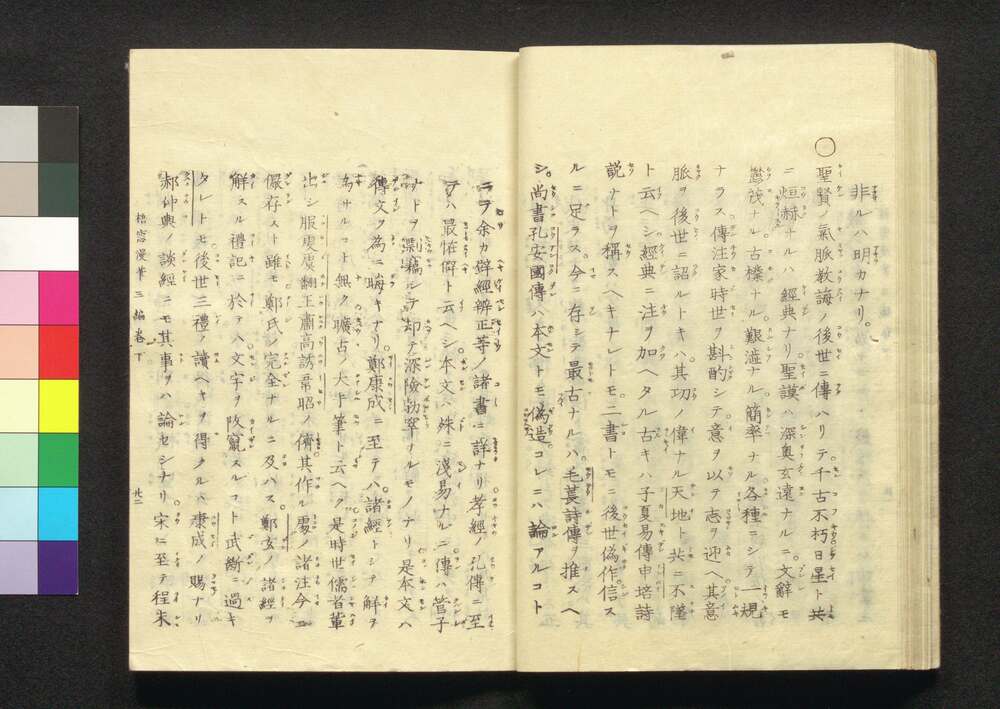 非ルハ明カナリ。
〇聖賢ノ氣脈教誨ノ後世ニ傳ハリテ千古不朽日星ト共
ニ烜赫ナルハ經典ナリ聖謨ハ深奥玄遠ナルニ文辭モ
茂ナル古樸ナル艱澁ナル簡率ナル各種ニシテ一規
ナラス傳注家時世ヲ斟酌シテ意ヲ以テ志ヲ迎ヘ其意
脈ヲ後世ニ詔ルトキハ其功ノ偉ナル天地ト共ニ不墜
ト云ヘシ經典ニ注ヲ加ヘタル古キハ子夏易傳申培詩
説ナトヲ稱スヘキナレトモ二書トモニ後世偽作信ス
ルニ足ラス今ニ存シテ最古ナルハ毛萇詩傳ヲ推スヘ
シ。尚書孔安國傳ハ本文トモ偽造。コレニハ論アルコト
ニテ余カ辟經辨正等ノ諸書ニ詳ナリ孝經ノ孔傳ニ至
テハ最怪僻ト云ヘシ本文ハ殊ニ淺易ナルニ傳ハ管子
ナトヲ剽竊シテ却テ深險勃窣ナルモノナリ是本文ハ
傳文ヲ為ニ晦キナリ鄭康成ニ至テハ諸經トシテ解ヲ
為サルコト無ク曠古ノ大手筆ト云ヘク是時世儒者輩
出シ服虔虞翻王肅高誘韋昭ノ儕其作ル處ノ諸注今ニ
儼存スト雖モ鄭氏ノ完全ナルニ及ハス。鄭玄ノ諸經ヲ
解スル禮記ニ於テハ文字ヲ改竄スルコト武斷ニ過キ
タレトモ後世三禮ノ讀ヘキヲ得タルハ康成ノ賜ナリ
郝仲輿ノ談經ニモ其事ヲハ論セシナリ。宋ニ至テ程朱
窓漫筆 三編卷下 廿二